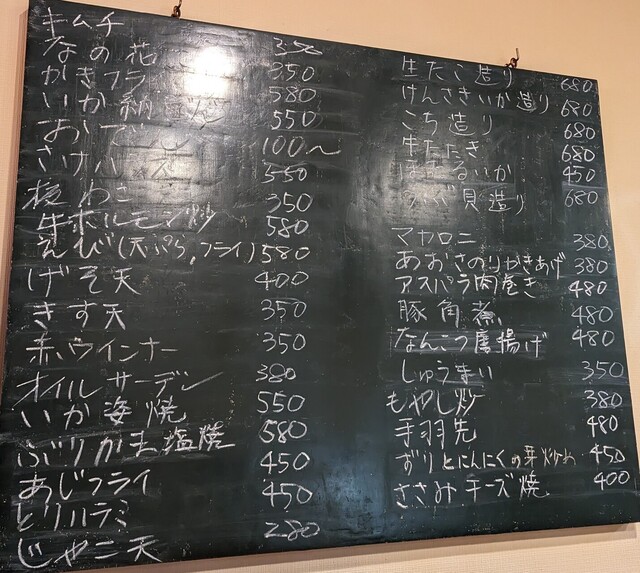 キムチ
なの花 350
かきフライ 580
いか納豆 550
おでん 100～
さけハラス 550
板わさ 350
牛ホルモン炒 580
えび(天ぷら,フライ) 580
げそ天 400
きす天 350
赤ウインナー 350
オイルサーデン 380
いか姿焼 550
ぶりかま塩焼 580
あじフライ 450
とりハラミ 450
じゃこ天 280
生たこ造り 680
けんさきいか造り 680
こち造り 680
牛たたき 680
ほたるいか 450
貝造り 680
マカロニ 380
あおさのりかきあげ 380
アスパラ肉巻き 480
豚角煮 480
なんこつ唐揚げ 480
しゅうまい 350
もやし炒 380
手羽先 480
ずりとにんにくの芽炒め 450
ささみチーズ焼 400